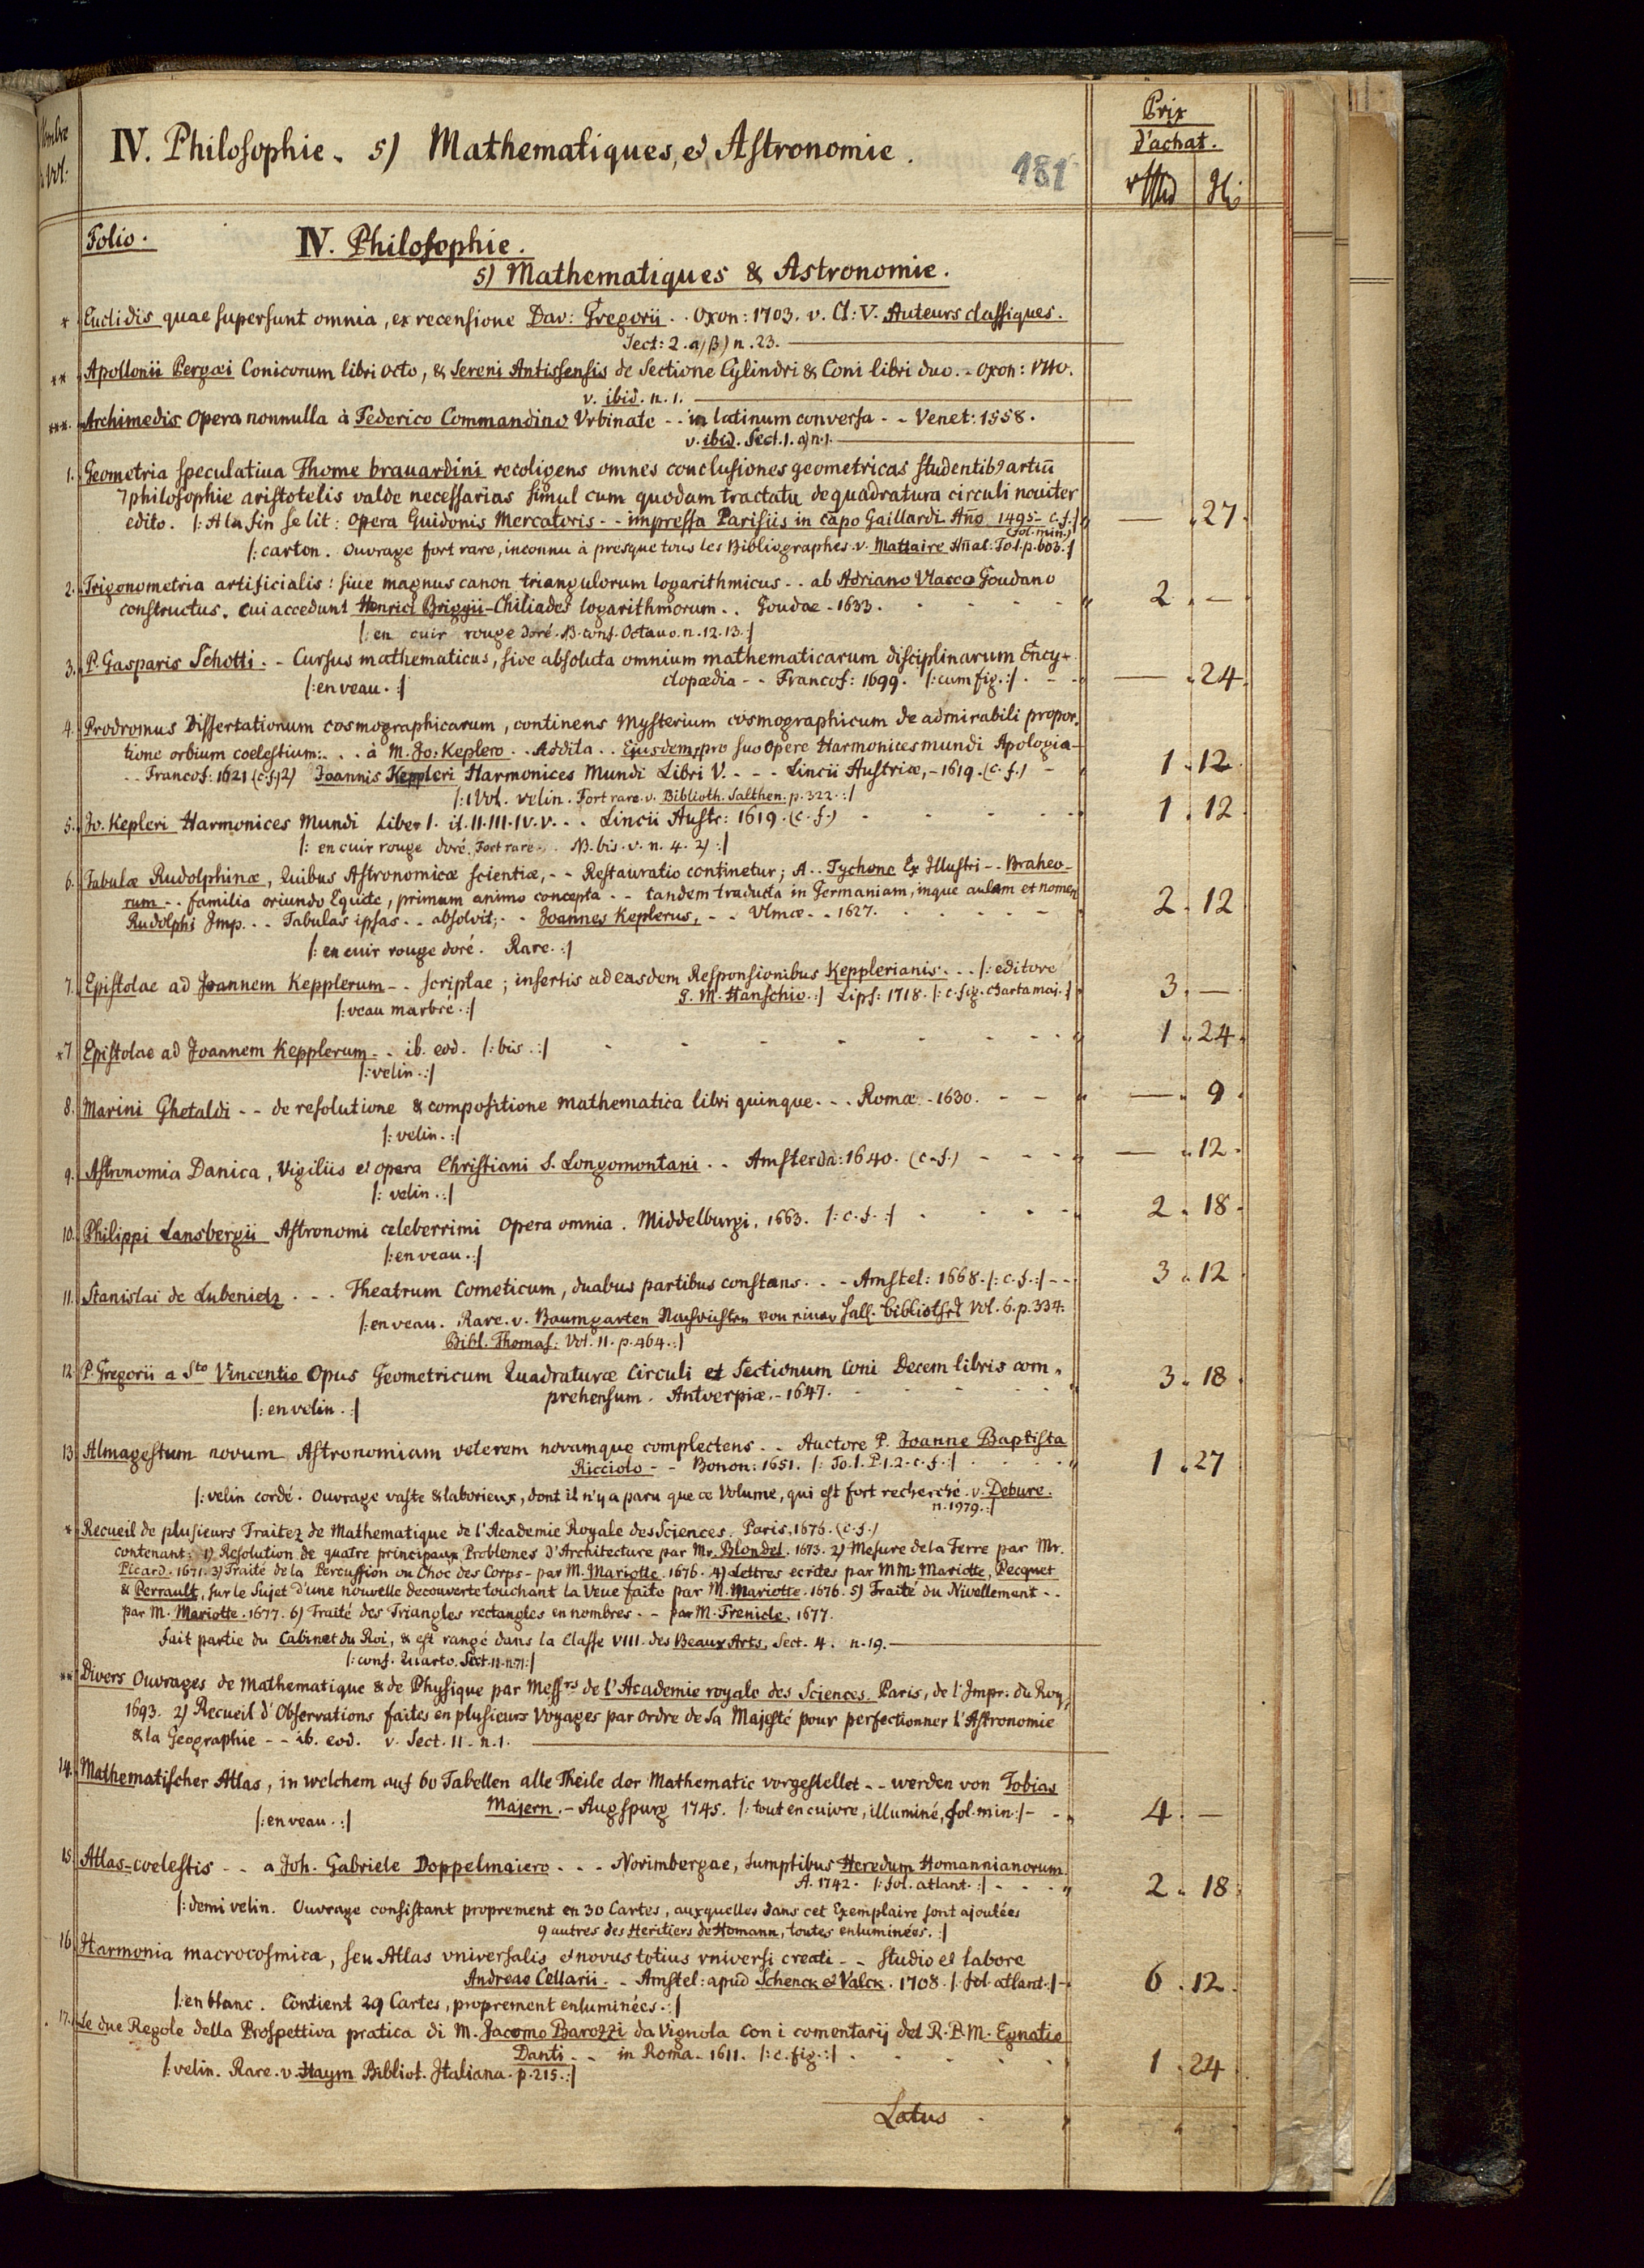 Nombre
d. Vol:
IV. Philosophie. 5) Mathematiques, et Astronomie.
181
Prix
d'achat.
Folio.
IV. Philosophie.
5) Mathematiques & Astronomie.
* Euclidis quae supersunt omnia, ex recensione Dav: Gregorii . . Oxon: 1703. v. Cl: V. Auteurs classiques.
Sect: 2. a) β) n. 23.
** Apollonii Pergæi Conicorum libri octo, & Sereni Antissensis de Sectione Cylindri & Coni libri duo. - Oxon: 1710.
v. ibid. n. 1.
***. Archimedis Opera nonnulla à Federico Commandino Urbinate - - in latinum conversa - - Venet: 1558.
v. ibid. Sect. 1. a) n. 1.
1. Geometria speculatiua Thome brauardini recoligens omnes conclusiones geometricas studentib9 artiū
7 philosophie aristotelis valde necessarias simul cum quodam tractatu de quadratura circuli nouiter
edito. |: A la fin se lit: Opera Guidonis Mercatoris - - impressa Parisiis in cāpo Gaillardi Año 1495 - c. f. :| — . 27.
(fol. min.)
|: carton. Ouvrage fort rare, inconnu à presque tous les Bibliographes. v. Mattaire Añal. To. 1. p. 603. :|
2. Trigonometria artificialis: siue magnus canon triangulorum logarithmicus - - ab Adriano Vlacco Goudano
constructus. Cui accedunt Henrici Briggii - Chiliades logarithmorum . . Goudae - 1633. 2 . —
|: en cuir rouge doré. N. conf. Octavo. n. 12. 13. :|
3. P. Gasparis Schotti. - Cursus mathematicus, sive absoluta omnium mathematicarum disciplinarum Ency-
|: en veau. :| clopædia - - Francof: 1699. |: cum fig. :| — . 24.
4. Prodromus Dissertationum cosmographicarum, continens Mysterium cosmographicum de admirabili propor-
tione orbium coelestium: . . . à M. Jo: Keplero . . Addita . . Ejusdem, pro suo Opere Harmonices mundi Apologia -
- - Francof: 1621 (c. f.) 2) Joannis Keppleri Harmonices Mundi Libri V. - - - Lincii Austriæ, - 1619. (c. f.) - 1 . 12
|: 1 Vol. velin. Fort rare. v. Biblioth. Salthen. p. 322. :|
5. Jo. Kepleri Harmonices Mundi Liber I. it. II. III. IV. V. . . Lincii Austr: 1619. (c. f.) 1 . 12
|: en cuir rouge doré. Fort rare. . N. bis. v. n. 4. 2) :|
6. Tabulæ Rudolphinæ, Quibus Astronomicæ scientiæ, - - Restauratio continetur; A . . Tychone Ex Illustri - - Braheo-
rum - - familia oriundo Equite, primum animo concepta - - tandem traducta in Germaniam, inque aulam et nomen
Rudolphi Imp. . . Tabulas ipsas . . absolvit; - - Joannes Keplerus, - - Ulmæ - - 1627. 2 . 12
|: en cuir rouge doré. Rare. :|
7. Epistolae ad Joannem Kepplerum - - scriptae; insertis ad easdem Responsionibus Kepplerianis. . . |: editore
G. M. Hanschio. :| Lips: 1718. |: c. fig. charta maj. :| 3 . —
|: veau marbré. :|
*7 Epistolae ad Joannem Kepplerum - . ib. eod. |: bis. :| 1 . 24.
|: velin. :|
8. Marini Ghetaldi - - de resolutione & compositione mathematica libri quinque. - . Romæ - 1630. — . 9.
|: velin. :|
9. Astronomia Danica, Vigiliis et opera Christiani S. Longomontani . . Amsterda: 1640. (c. f.) — . 12.
|: velin. :|
10. Philippi Lansbergii Astronomi celeberrimi Opera omnia. Middelburgi. 1663. |: c. f. :| 2 . 18.
|: en veau. :|
11. Stanislai de Lubenietz . - . Theatrum Cometicum, duabus partibus constans. . - Amstel: 1668. |: c. f. :| - - 3 . 12
|: en veau. Rare. v. Baumgarten Nachrichten von einer hall. Bibliothek Vol. 6. p. 334.
Bibl. Thomas: Vol. II. p. 464. :|
12. P. Gregorii a Sto Vincentio Opus Geometricum Quadraturæ Circuli et Sectionum Coni Decem libris com-
prehensum. Antverpiæ. - 1647. 3 . 18.
|: en velin. :|
13. Almagestum novum Astronomiam veterem novamque complectens . . Auctore P. Joanne Baptista
Ricciolo - - Bonon: 1651. |: To. I. P. 1. 2. c. f. :| 1 . 27
|: velin cordé. Ouvrage vaste & laborieux, dont il n'y a paru que ce Volume, qui est fort recherché. v. Debure.
n. 1979. :|
* Recueil de plusieurs Traitez de Mathematique de l'Academie Royale des Sciences. Paris, 1676. (c. f.)
contenant: 1) Resolution de quatre principaux Problemes d'Architecture par Mr. Blondel. 1673. 2) Mesure de la Terre par Mr.
Picard. 1671. 3) Traité de la Percussion ou Choc des Corps - par M. Mariotte. 1676. 4) Lettres ecrites par MM. Mariotte, Pecquet
& Perrault, sur le Sujet d'une nouvelle decouverte touchant la Veue faite par M. Mariotte. 1676. 5) Traité du Nivellement - -
par M. Mariotte. 1677. 6) Traité des Triangles rectangles en nombres - - par M. Frenicle. 1677.
fait partie du Cabinet du Roi, & est rangé dans la Classe VIII. des Beaux Arts, Sect. 4. n. 19.
|: conf. Quarto. Sect. 11. n. 71 :|
** Divers Ouvrages de Mathematique & de Physique par Messrs de l'Academie royale des Sciences. Paris, de l'Impr. du Roy,
1693. 2) Recueil d'Observations faites en plusieurs Voyages par ordre de Sa Majesté pour perfectionner l'Astronomie
& la Geographie - - ib. eod. v. Sect. 11. n. 1.
14. Mathematischer Atlas, in welchem auf 60 Tabellen alle Theile der Mathematic vorgestellet - - werden von Tobias
Majern. - Augspurg 1745. |: tout en cuivre, illuminé, fol. min :| - 4 . —
|: en veau. :|
15. Atlas-coelestis - - a Joh. Gabriele Doppelmaiero . . . Norimbergae, Sumptibus Heredum Homannianorum.
A. 1742. |: fol. atlant. :| 2 . 18.
|: demi velin. Ouvrage consistant proprement en 30 Cartes, auxquelles dans cet Exemplaire sont ajoutées
9 autres des Heritiers de Homann, toutes enluminées. :|
16. Harmonia macrocosmica, seu Atlas vniversalis et novus totius vniversi creati - - Studio et labore
Andreae Cellarii. - Amstel: apud Schenck et Valck. 1708. |: fol. atlant. :| - 6 . 12.
|: en blanc. Contient 29 Cartes, proprement enluminées. :|
17. Le due Regole della Prospettiva pratica di M. Jacomo Barozzi da Vignola con i comentarij del R. P. M. Egnatio
Danti - - in Roma. 1611. |: c. fig. :| 1 . 24
|: velin. Rare. v. Haym Bibliot. Italiana. p. 215. :|
Latus